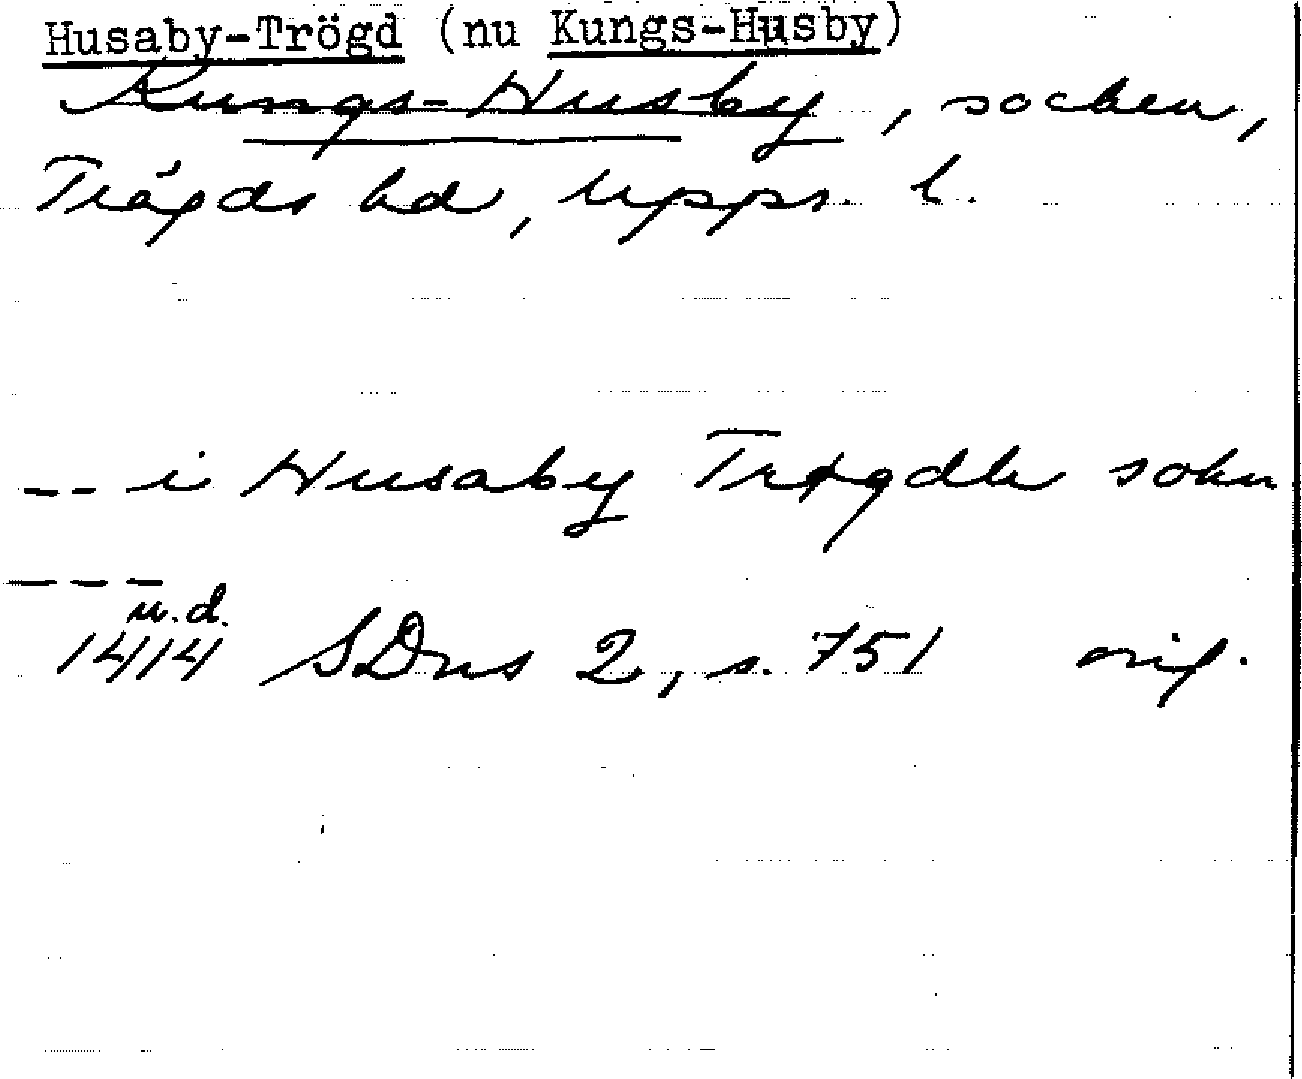 Husaby-Trögd (nu Kungs-Husby)
Kungs-Husby, socken,
Trögds hd, Upps. l.
-- i Husaby Trøgdh sokn
---
u.d.
1414 SDns 2, s. 751 orig.